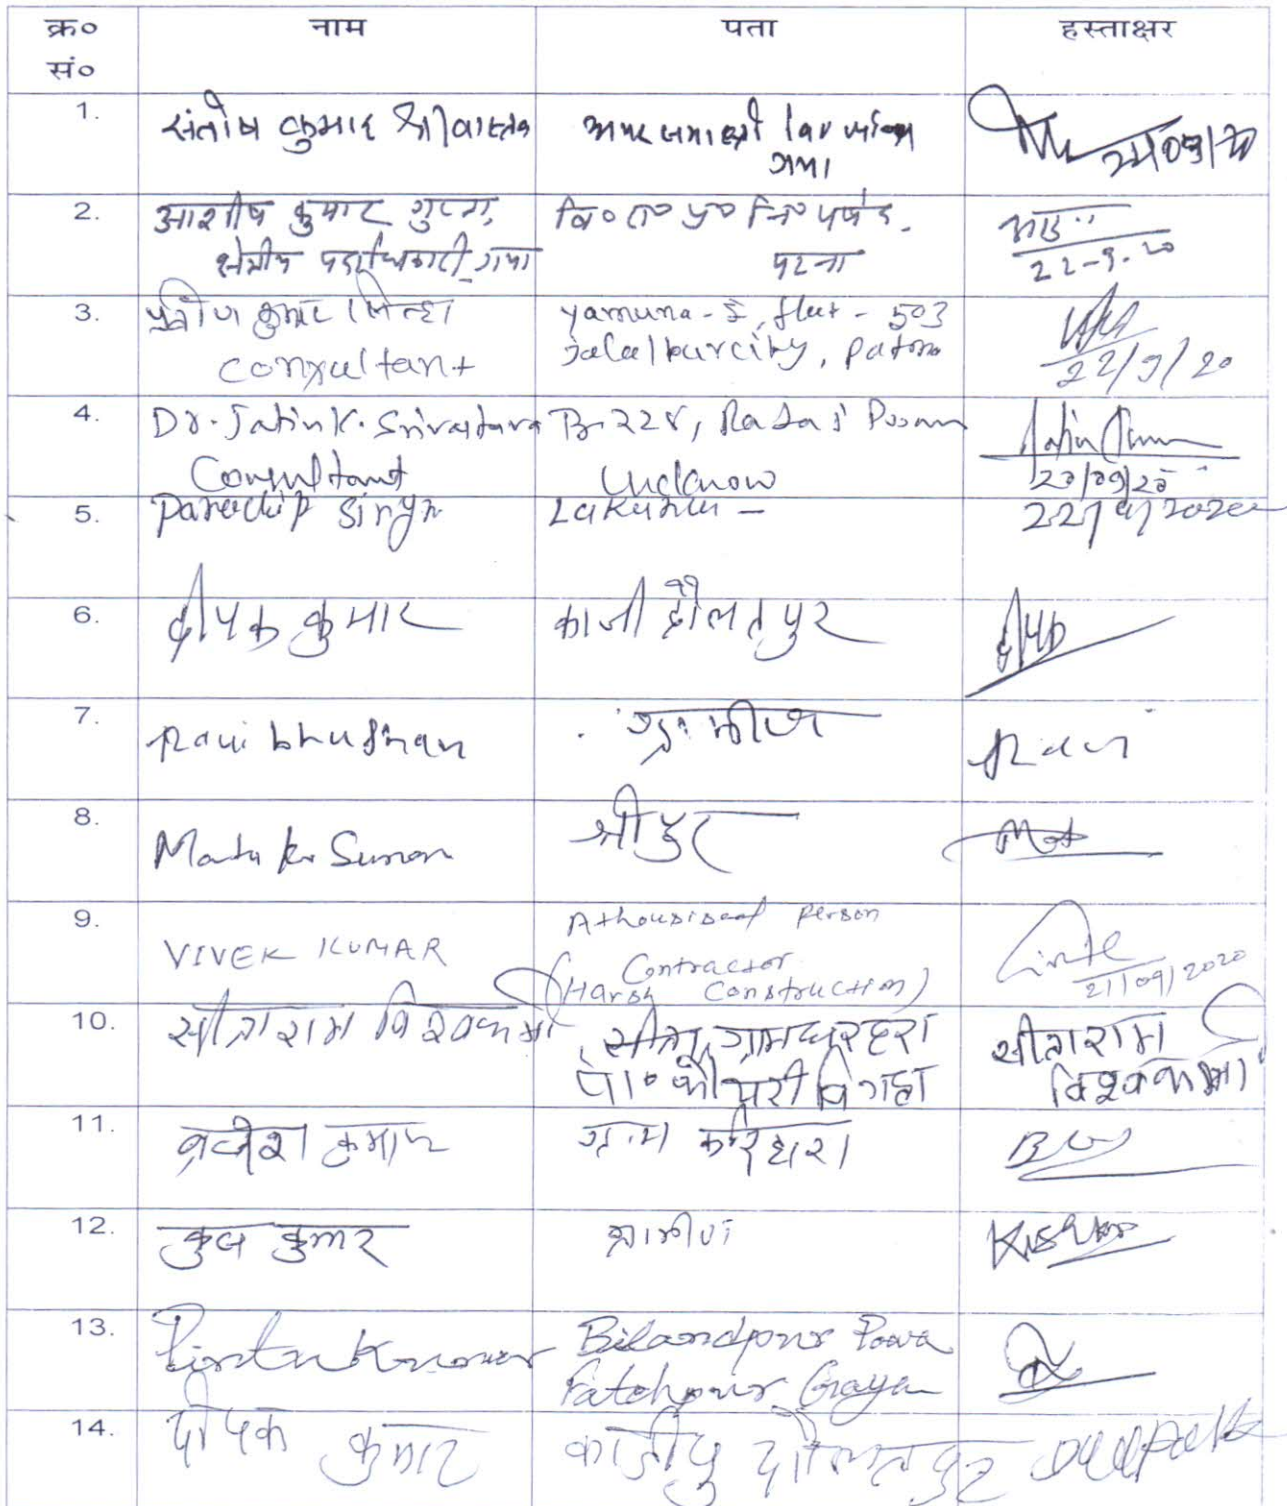 क्र०
सं०
नाम
पता
हस्ताक्षर
1.
संतोष कुमार श्रीवास्तव
गया
22/09/20
2.
आशीष कुमार गुप्ता,
क्षेत्रीय पदाधिकारी, गया
बि० रा० प्र० नि० पर्षद.
पटना
22-9-20
3.
प्रवीण कुमार सिन्हा
Consultant
Yamuna - E, flat - 503
Jalalpur city, Patna
22/9/20
4.
Dr. Jatin K. Srivastava
Consultant
B-228, Rajaji Puram
Lucknow
22/09/20
5.
Pardip Singh
22/9/2020
6.
दीपक कुमार
काजी दौलतपुर
दीपक
7.
Ravi bhushan
ग्रामीण
Ravi
8.
Kr Suman
श्रीपुर
9.
VIVEK KUMAR
Athousised person
Contractor
(Harsh Construction)
21/09/2020
10.
सीताराम विश्वकर्मा
ग्राम धरहरा
पो० चौधरी विगहा
सीताराम
विश्वकर्मा
11.
ब्रजेश कुमार
ग्राम
12.
कुमार
ग्रामीण
13.
Pintu Kumar
Bilandpur
Fatehpur Gaya
14.
दीपक कुमार
दौलतपुर
Deepak